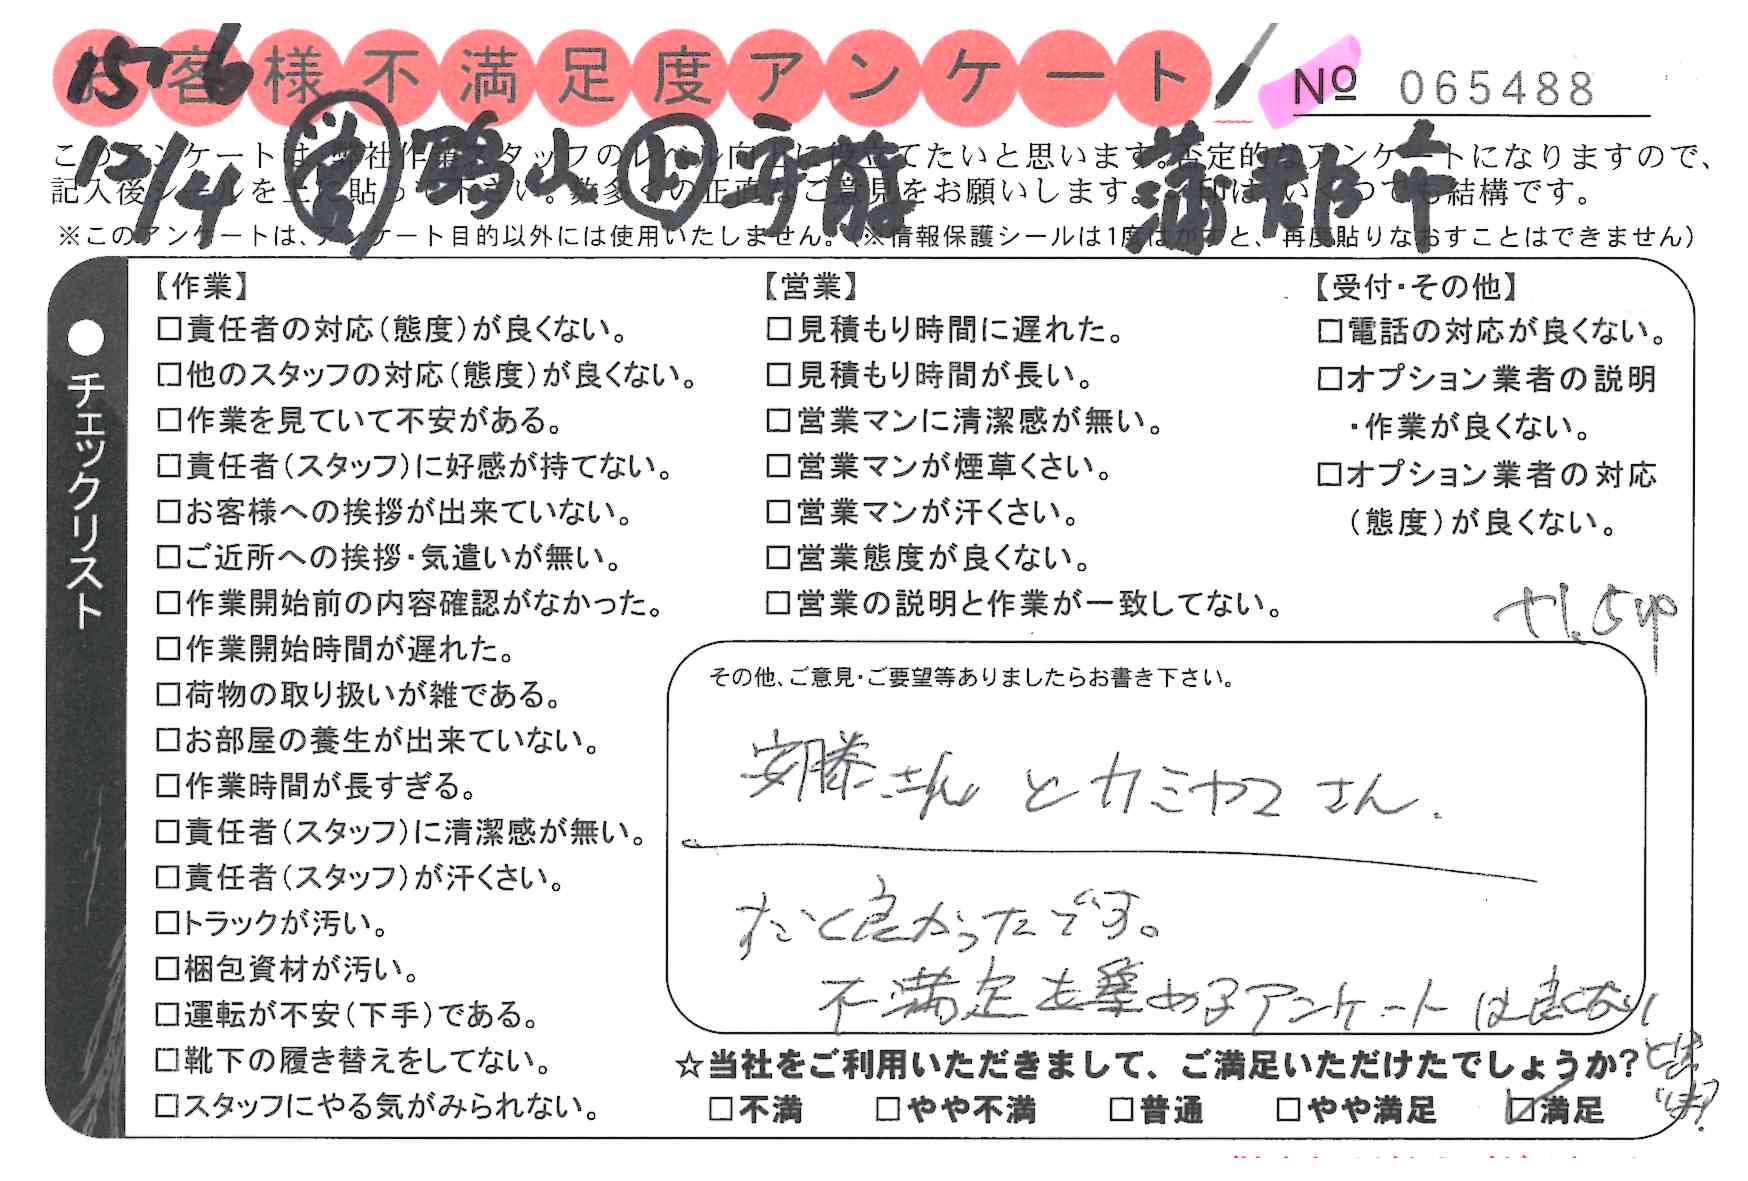 お客様不満足度アンケート
1576
No 065488
12/4 営 鴨山 上 安藤 蒲郡市
このアンケートは、弊社作業スタッフのレベル向上に役立てたいと思います。否定的なアンケートになりますので、
記入後シールを上に貼って下さい。数多くの正直なご意見をお願いします。レ印は、いくつでも結構です。
※このアンケートは、アンケート目的以外には使用いたしません。(※情報保護シールは1度はがすと、再度貼りなおすことはできません)
●チェックリスト
【作業】
□責任者の対応(態度)が良くない。
□他のスタッフの対応(態度)が良くない。
□作業を見ていて不安がある。
□責任者(スタッフ)に好感が持てない。
□お客様への挨拶が出来ていない。
□ご近所への挨拶・気遣いが無い。
□作業開始前の内容確認がなかった。
□作業開始時間が遅れた。
□荷物の取り扱いが雑である。
□お部屋の養生が出来ていない。
□作業時間が長すぎる。
□責任者(スタッフ)に清潔感が無い。
□責任者(スタッフ)が汗くさい。
□トラックが汚い。
□梱包資材が汚い。
□運転が不安(下手)である。
□靴下の履き替えをしてない。
□スタッフにやる気がみられない。
【営業】
□見積もり時間に遅れた。
□見積もり時間が長い。
□営業マンに清潔感が無い。
□営業マンが煙草くさい。
□営業マンが汗くさい。
□営業態度が良くない。
□営業の説明と作業が一致してない。
【受付・その他】
□電話の対応が良くない。
□オプション業者の説明
・作業が良くない。
□オプション業者の対応
(態度)が良くない。
+1.5yp
その他、ご意見・ご要望等ありましたらお書き下さい。
安藤さんとカミヤマさん.
すごく良かったです。
不満足を集めるアンケートは良くない
☆当社をご利用いただきまして、ご満足いただけたでしょうか?
□不満 □やや不満 □普通 □やや満足 ☑満足